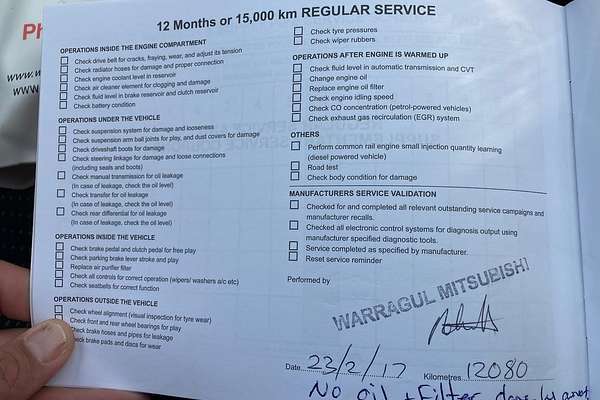 Ph
www.w
www
12 Months or 15,000 km REGULAR SERVICE
OPERATIONS INSIDE THE ENGINE COMPARTMENT
Check drive belt for cracks, fraying, wear, and adjust its tension
Check radiator hoses for damage and proper connection
Check engine coolant level in reservoir
Check air cleaner element for clogging and damage
Check fluid level in brake reservoir and clutch reservoir
Check battery condition
OPERATIONS UNDER THE VEHICLE
Check suspension system for damage and looseness
Check suspension arm ball joints for play, and dust covers for damage
Check driveshaft boots for damage
Check steering linkage for damage and loose connections
(including seals and boots)
Check manual transmission for oil leakage
(In case of leakage, check the oil level)
Check transfer for oil leakage
(In case of leakage, check the oil level)
Check rear differential for oil leakage
(In case of leakage, check the oil level)
OPERATIONS INSIDE THE VEHICLE
Check brake pedal and clutch pedal for free play
Check parking brake lever stroke and play
Replace air purifier filter
Check all controls for correct operation (wipers/ washers a/c etc)
Check seatbelts for correct function
OPERATIONS OUTSIDE THE VEHICLE
Check wheel alignment (visual inspection for tyre wear)
Check front and rear wheel bearings for play
Check brake hoses and pipes for leakage
Check brake pads and discs for wear
Check tyre pressures
Check wiper rubbers
OPERATIONS AFTER ENGINE IS WARMED UP
Check fluid level in automatic transmission and CVT
Change engine oil
Replace engine oil filter
Check engine idling speed
Check CO concentration (petrol-powered vehicles)
Check exhaust gas recirculation (EGR) system
OTHERS
Perform common rail engine small injection quantity learning
(diesel powered vehicle)
Road test
Check body condition for damage
MANUFACTURERS SERVICE VALIDATION
Checked for and completed all relevant outstanding service campaigns and
manufacturer recalls.
Checked all electronic control systems for diagnosis output using
manufacturer specified diagnostic tools.
Service completed as specified by manufacturer.
Reset service reminder
Performed by
WARRAGUL MITSUBISHI
Date 23/2/17 Kilometres 12080
No oil + Filter done